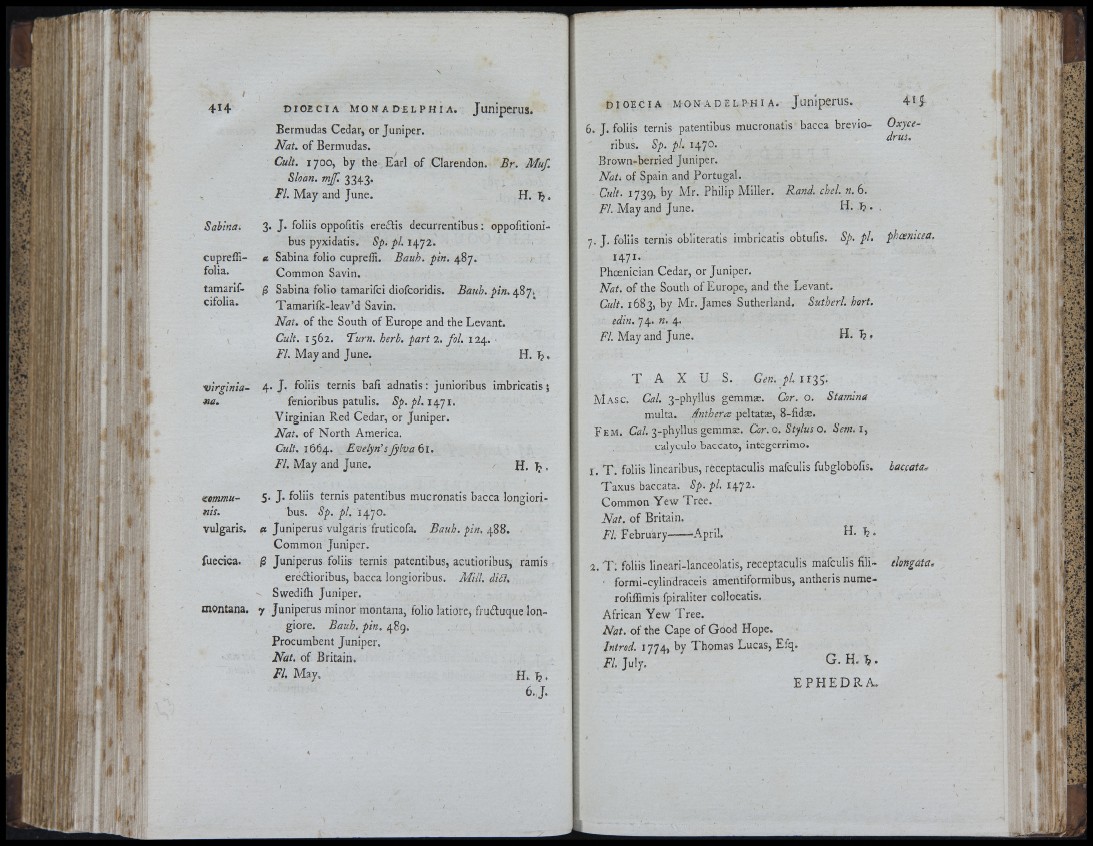 414 DIOECIA MONADELPHIA. Juniperus.
Bermudas Cedar, or Juniper.
Nat. of Bermudas.
Cult. 1700, by the Earl of Clarendon. Br. Muſ.
Sloan. mſſ. 3343.
Fl. May and June. H. ♄.
Sabina. 3. J. foliis oppoſitis erectis decurrentibus: oppoſitioni-
bus pyxidatis. Sp. pl. 1472.
cupreſſi- α Sabina folio cupreſſi. Bauh. pin. 487.
folia. Common Savin.
tamariſ- β Sabina folio tamariſci dioſcoridis. Bauh. pin. 487.
cifolia. Tamariſk-leav'd Savin.
Nat. of the South of Europe and the Levant.
Cult. 1562. Turn. herb. part 2. fol. 124.
Fl. May and June. H. ♄.
virginia- 4. J. foliis ternis baſi adnatis: junioribus imbricatis;
na. ſenioribus patulis. Sp. pl. 1471.
Virginian Red Cedar, or Juniper.
Nat. of North America.
Cult. 1664. Evelyn's ſylva 61.
Fl. May and June. H. ♄.
commu- 5. J. foliis ternis patentibus mucronatis bacca longiori-
nis. bus. Sp. pl. 1470.
vulgaris. α Juniperus vulgaris fruticoſa. Bauh. pin. 488.
Common Juniper.
ſuecica. β Juniperus foliis ternis patentibus, acutioribus, ramis
erectioribus, bacca longioribus. Mill. dict.
Swediſh Juniper.
montana. γ Juniperus minor montana, folio latiore, fructuque lon-
giore. Bauh. pin. 489.
Procumbent Juniper.
Nat. of Britain.
Fl. May. H. ♄.
6. J.
DIOECIA MONADELPHIA. Juniperus. 415
6. J. foliis ternis patentibus mucronatis bacca brevio- Oxyce-
ribus. Sp. pl. 1470. drus.
Brown-berried Juniper.
Nat. of Spain and Portugal.
Cult. 1739, by Mr. Philip Miller. Rand. chel. n. 6.
Fl. May and June. H. ♄.
7. J. foliis ternis obliteratis imbricatis obtuſis. Sp. pl. phœnicea.
1471.
Phœnician Cedar, or Juniper.
Nat. of the South of Europe, and the Levant.
Cult. 1683, by Mr. James Sutherland. Sutherl. hort.
edin. 74. n. 4.
Fl. May and June. H. ♄.
TAXUS. Gen. pl. 1135.
MASC. Cal. 3-phyllus gemmæ. Cor. 0. Stamina
multa. Antheræ peltatæ, 8-fidæ.
FEM. Cal. 3-phyllus gemmæ. Cor. 0. Stylus 0. Sem. 1,
calyculo baccato, integerrimo.
1. T. foliis linearibus, receptaculis maſculis ſubgloboſis. baccata.
Taxus baccata. Sp. pl. 1472.
Common Yew Tree.
Nat. of Britain.
Fl. February——April. H. ♄.
2. T. foliis lineari-lanceolatis, receptaculis maſculis fili- elongata.
formi-cylindraceis amentiformibus, antheris nume-
roſiſſimis ſpiraliter collocatis.
African Yew Tree.
Nat. of the Cape of Good Hope.
Introd. 1774, by Thomas Lucas, Eſq.
Fl. July. G. H. ♄.
EPHEDRA.